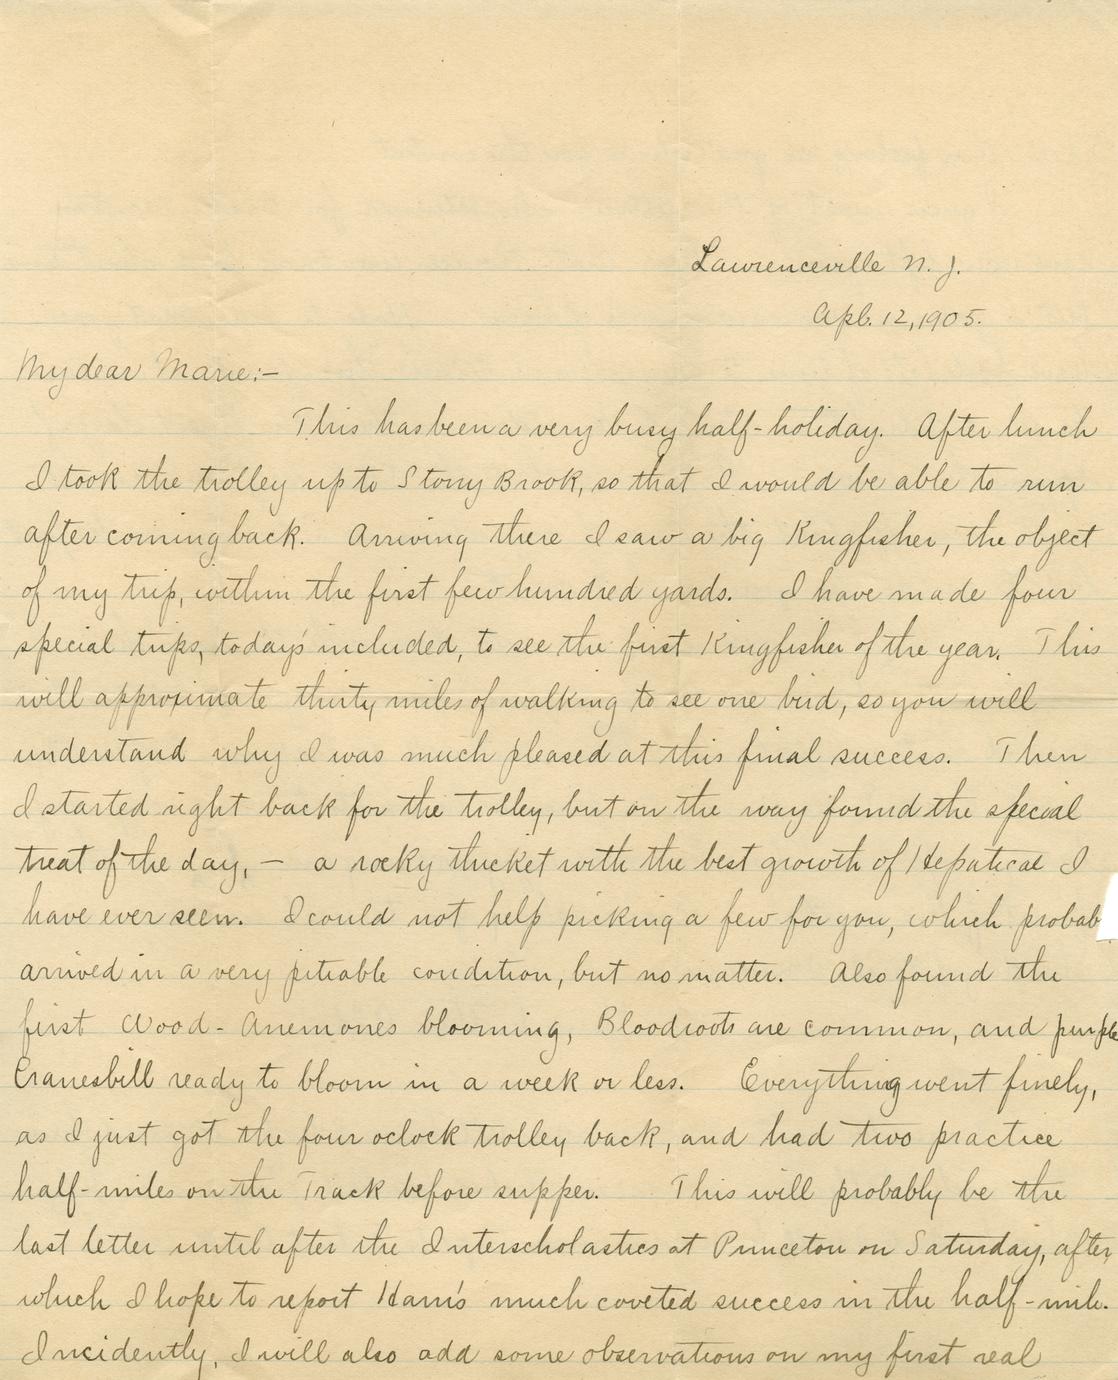 Lawrenceville N. J.
Apl. 12, 1905.
My dear Marie:—
This has been a very busy half-holiday. After lunch
I took the trolley up to Stony Brook, so that I would be able to run
after coming back. Arriving there I saw a big Kingfisher, the object
of my trip, within the first few hundred yards. I have made four
special trips, today's included, to see the first Kingfisher of the year. This
will approximate thirty miles of walking to see one bird, so you will
understand why I was much pleased at this final success. Then
I started right back for the trolley, but on the way found the special
treat of the day, — a rocky thicket with the best growth of Hepaticae I
have ever seen. I could not help picking a few for you, which probab
arrived in a very pitiable condition, but no matter. Also found the
first Wood-Anemones blooming, Bloodroots are common, and purple
Cranesbill ready to bloom in a week or less. Everything went finely,
as I just got the four oclock trolley back, and had two practice
half-miles on the Track before supper. This will probably be the
last letter until after the Interscholastics at Princeton on Saturday, after
which I hope to report Ham's much coveted success in the half-mile.
Incidently, I will also add some observations on my first real